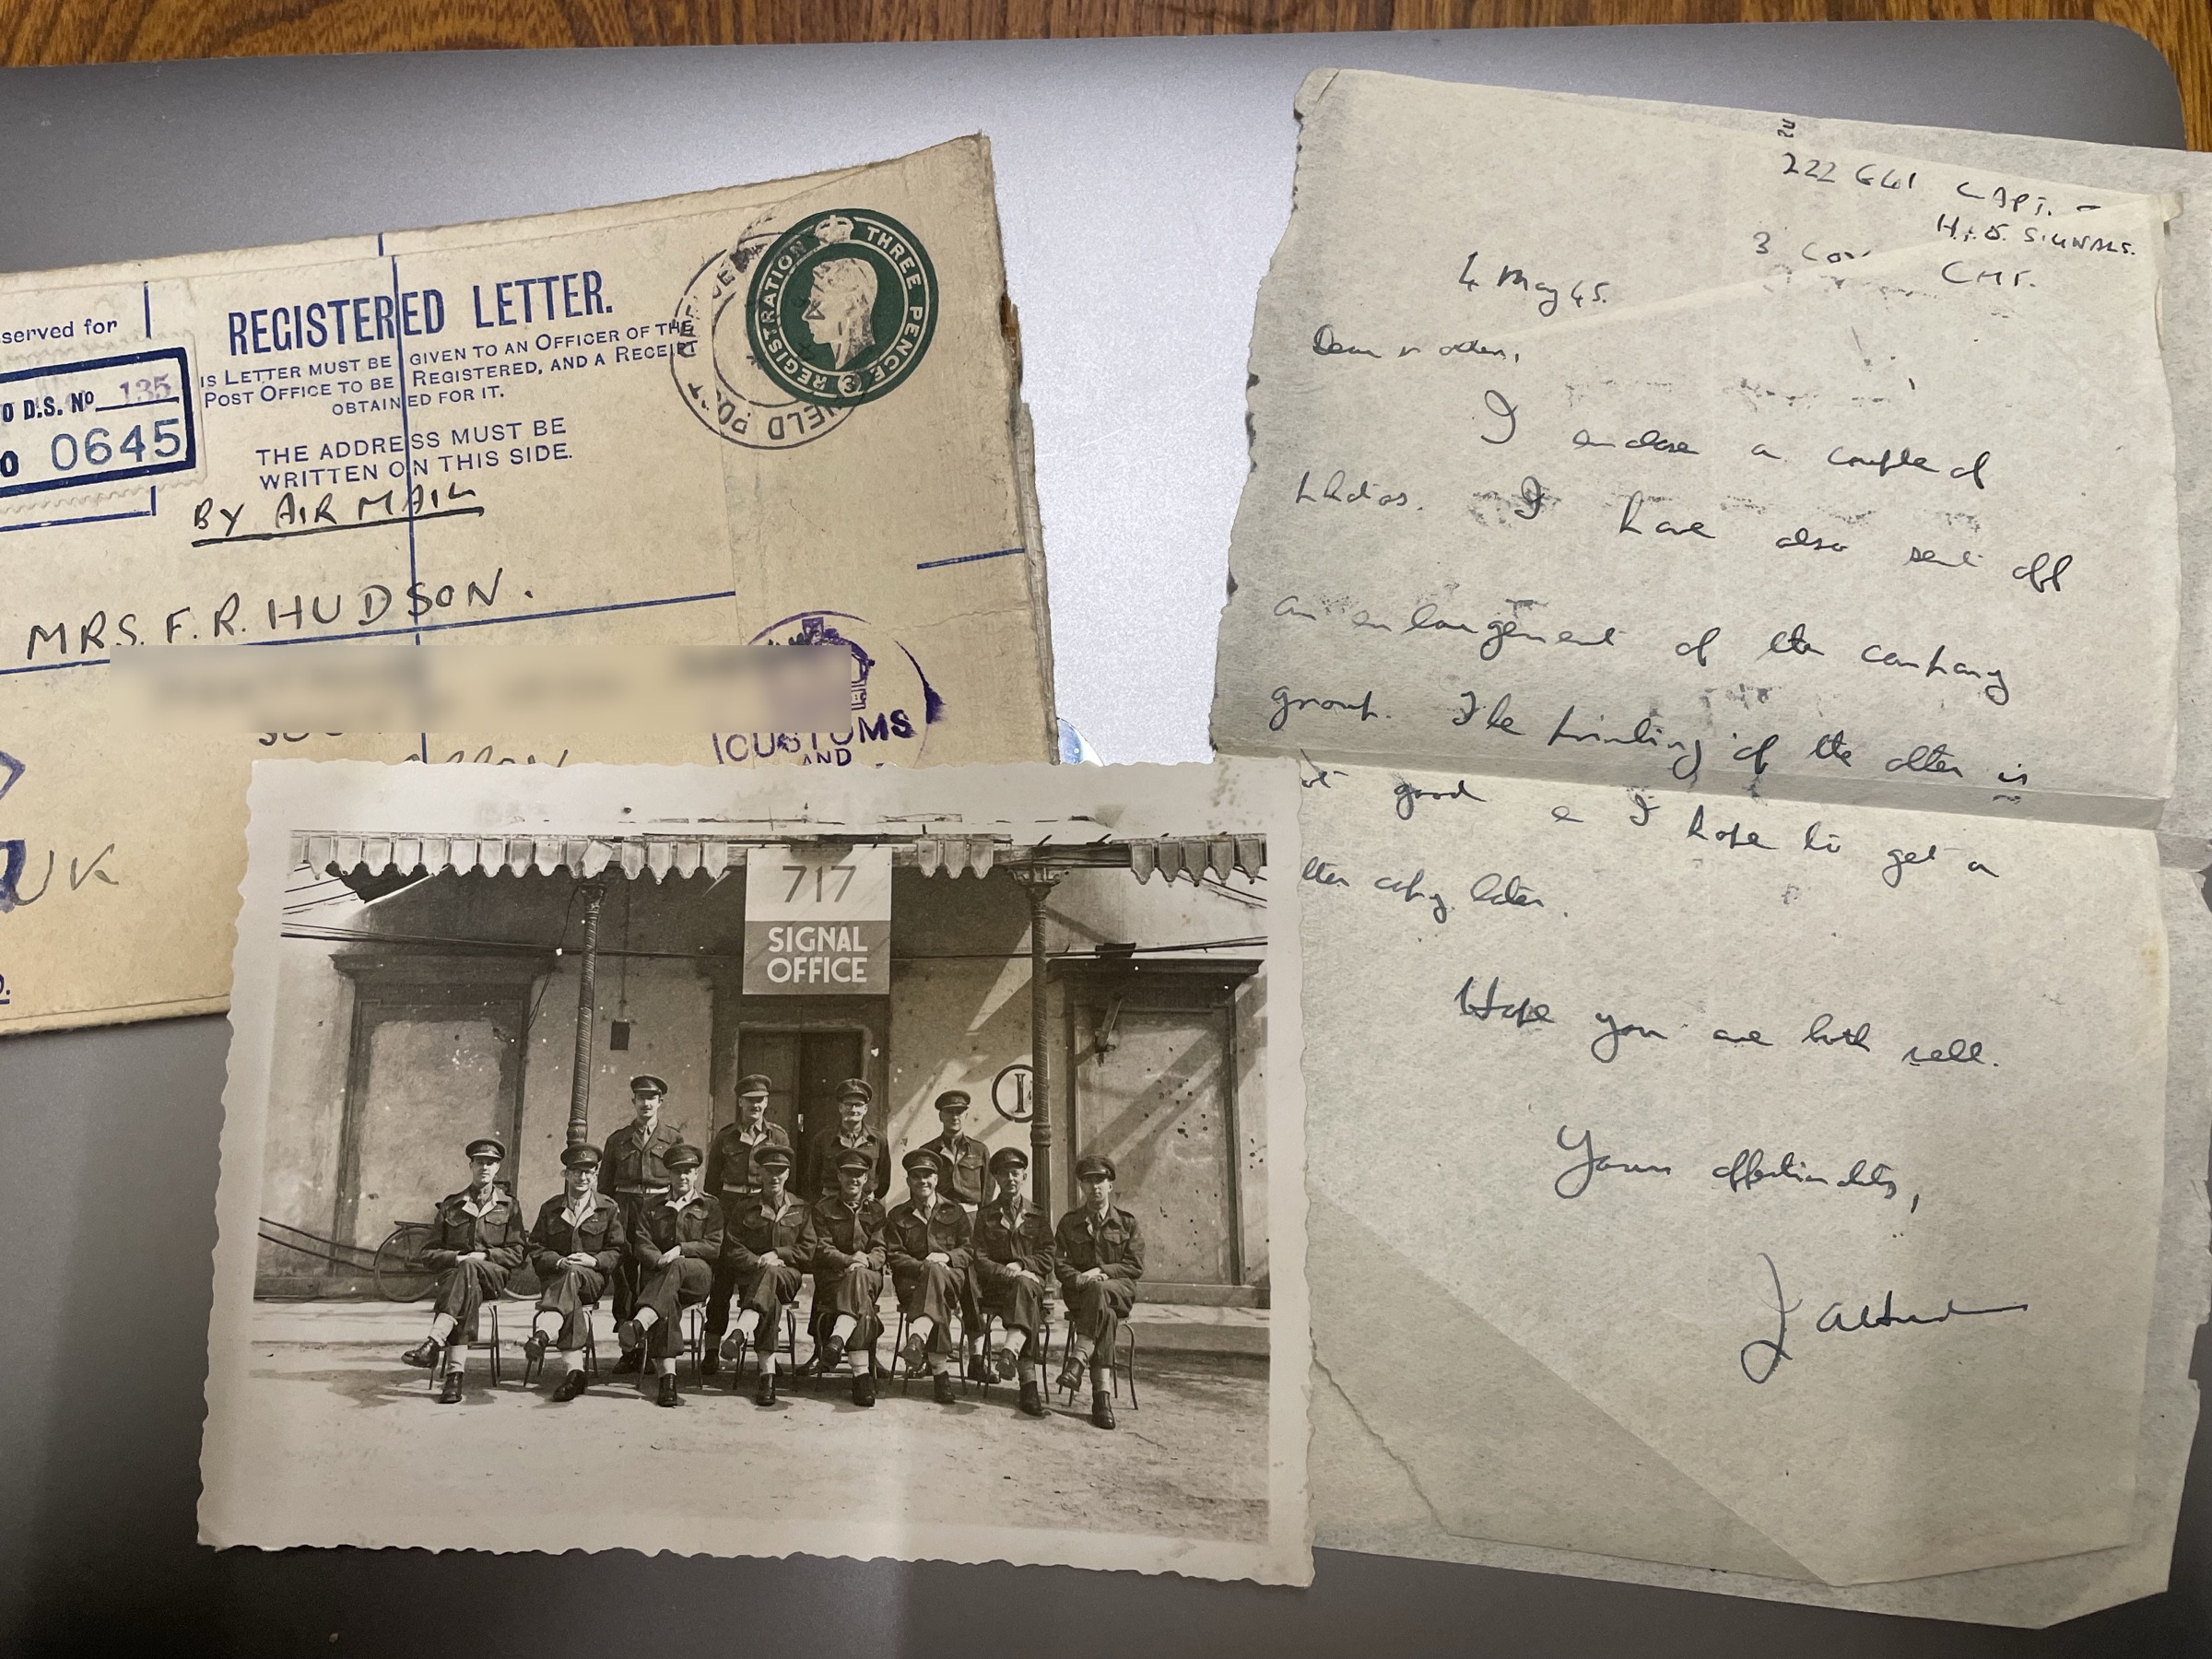 served for
O D.S. No 135
0645
REGISTERED LETTER.
IS LETTER MUST BE GIVEN TO AN OFFICER OF THE
POST OFFICE TO BE REGISTERED, AND A RECEIPT
OBTAINED FOR IT.
THE ADDRESS MUST BE
WRITTEN ON THIS SIDE.
BY AIR MAIL
MRS. F. R. HUDSON.
UK
REGISTRATION THREE PENCE 3
FIELD POST
CUSTOMS
AND
717
SIGNAL
OFFICE
222 CAPT. -
H.Q. SIGNALS.
3 CMF.
4 May 45.
Dear
I enclose a couple of
photos. I have also sent off
an enlargement of the company
group. The printing of the other is
good I hope to get a
copy later.
Hope you are both well.
Yours affectionately,